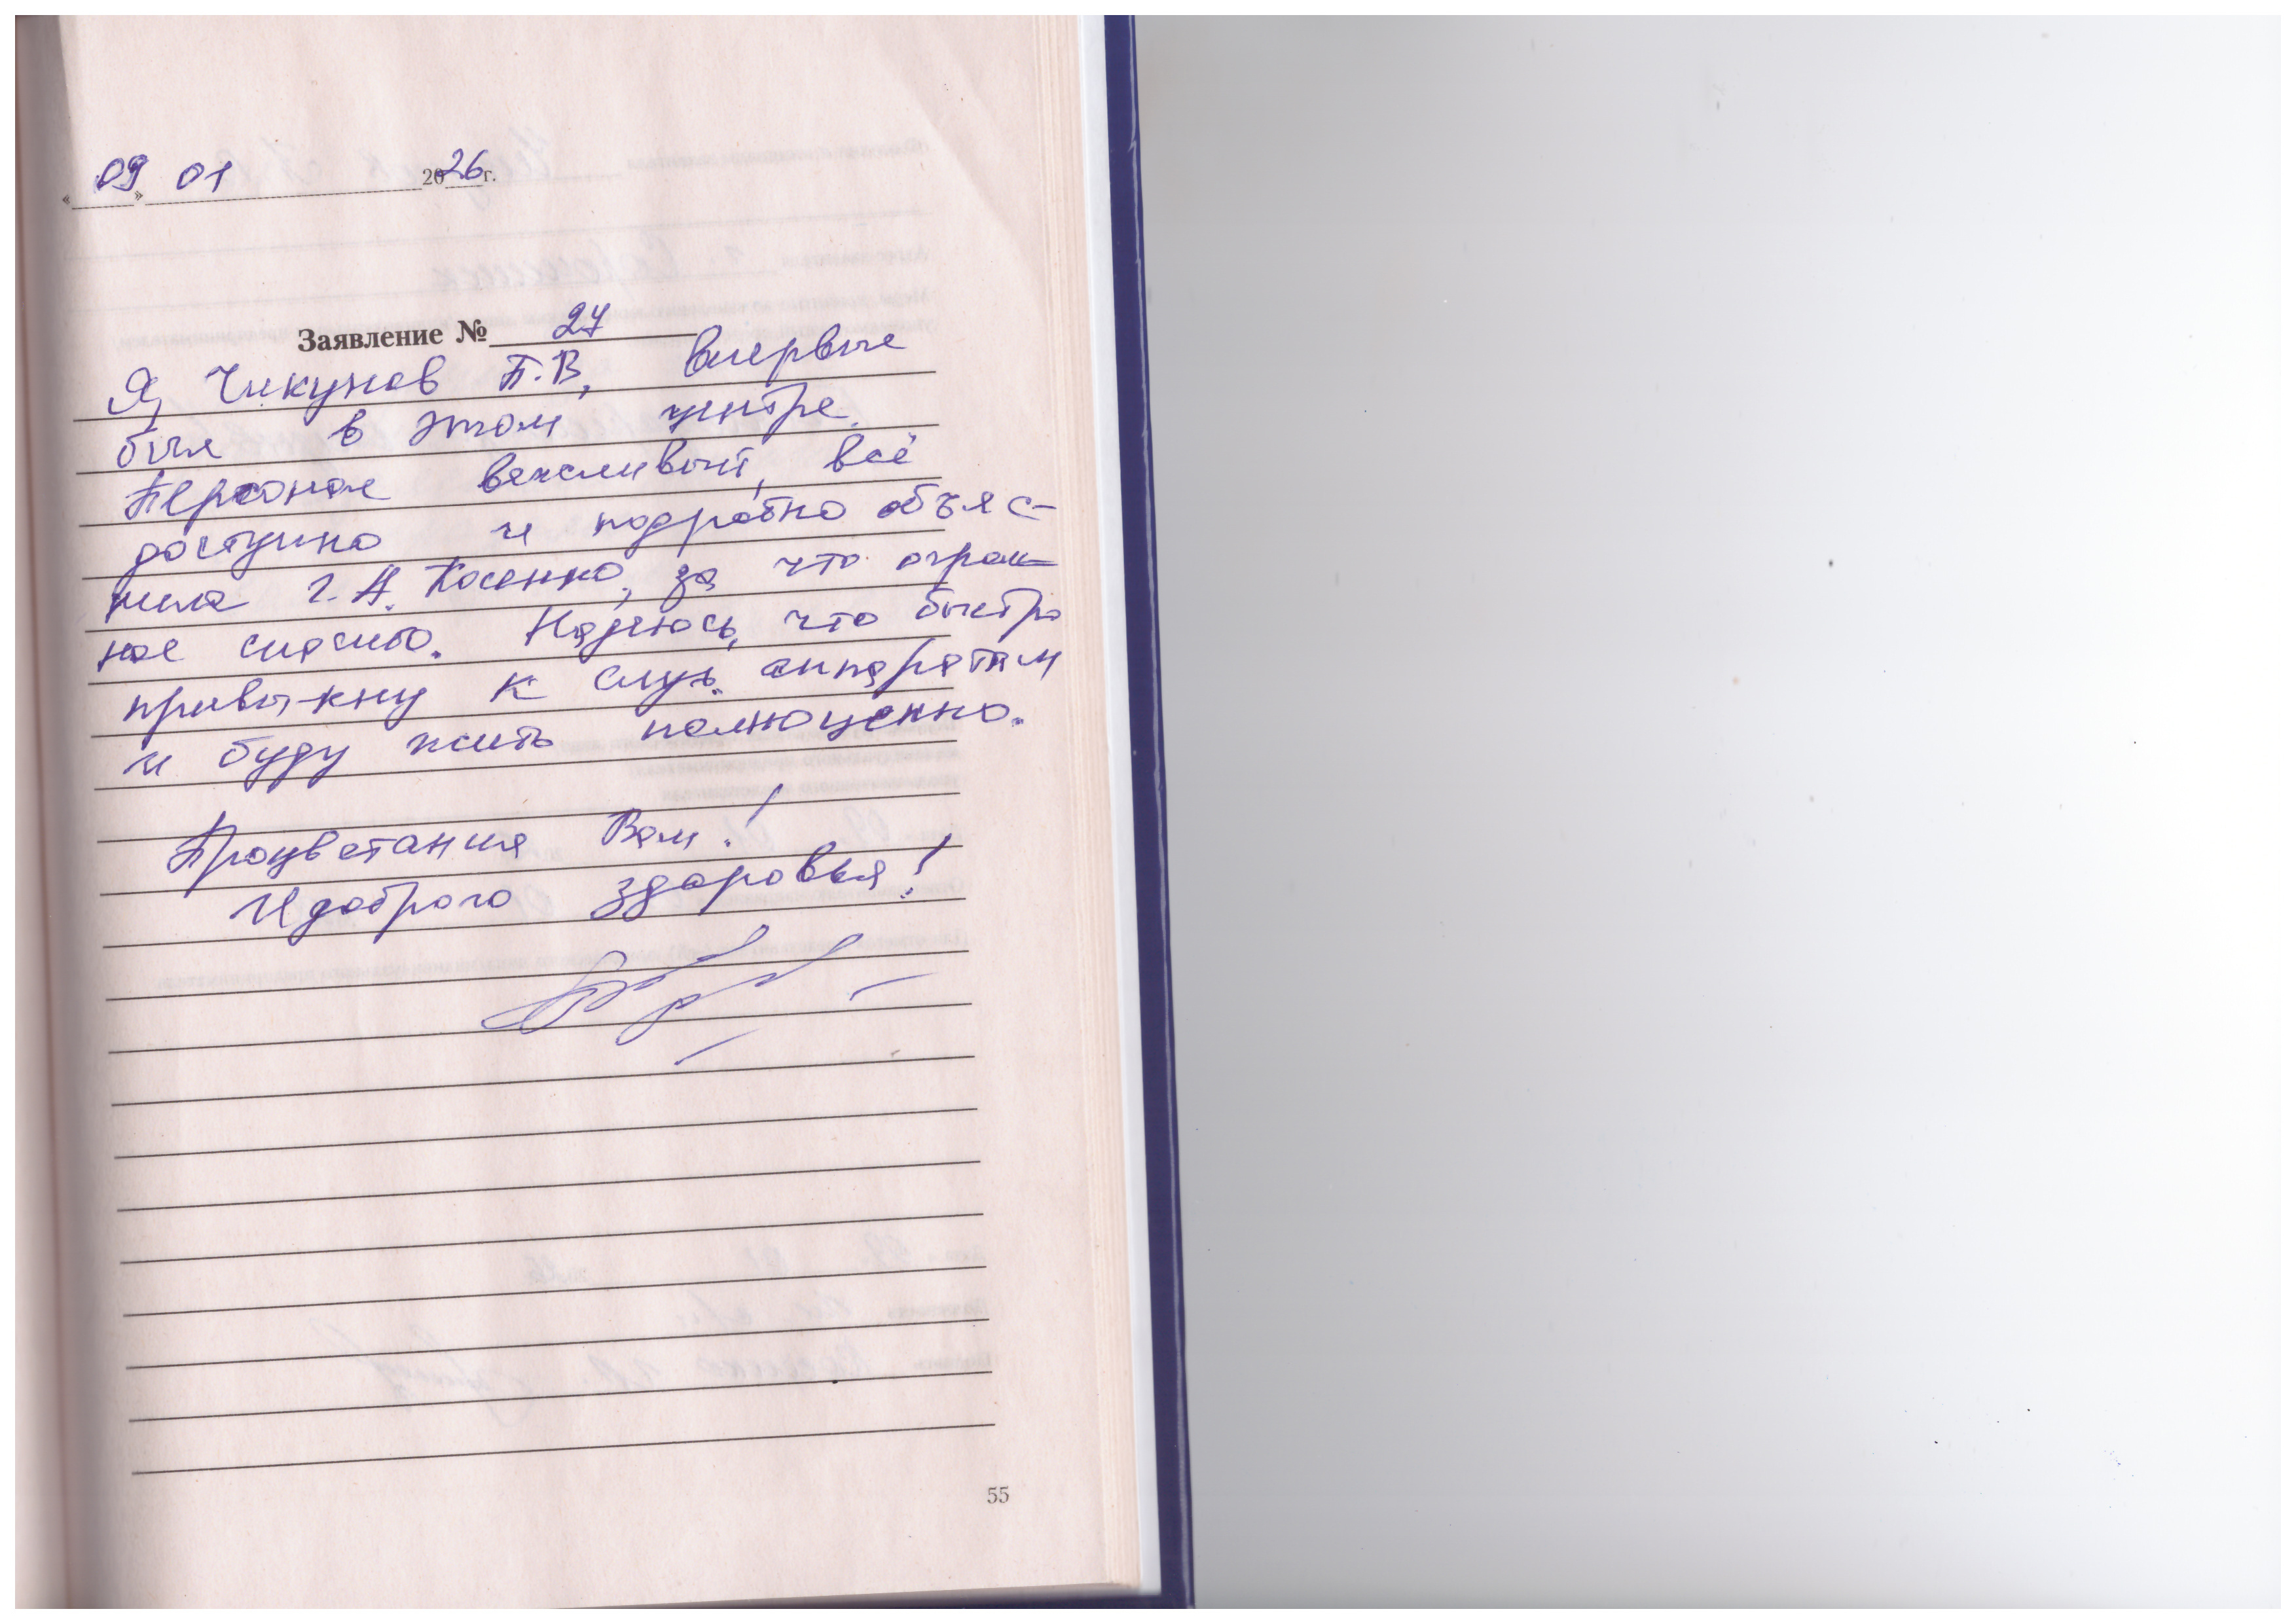 « 09 » 01 2026 г.
Заявление № 27
Я, Чикунов П.В, впервые
был в этом центре.
Персонал вежливый, всё
доступно и подробно объяс-
нила Г.А. Косенко, за что огром-
ное спасибо. Надеюсь, что быстро
привыкну к слух. аппаратам
и буду жить полноценно.
Процветания Вам!
И доброго здоровья!
55